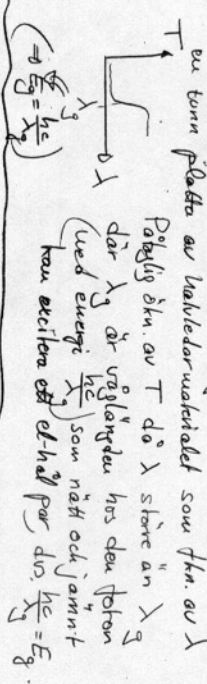 T en tunn platta av halvledarmaterialet som fkn. av λ
T
λ
λg
(⇒ Eg = hc/λg)
Påtaglig ökn. av T då λ större än λg
där λg är våglängden hos den foton
(med energi hc/λg) som nätt och jämnt
kan excitera ett el-hål par, dvs. hc/λg = Eg.